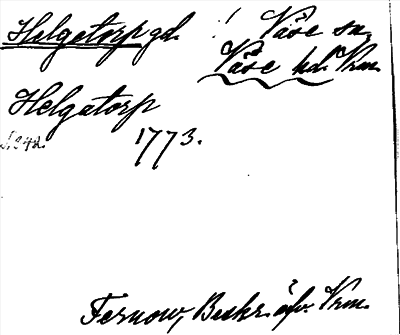 Helgatorp gd. ! Väse sn.
Väse hd. Vrm.
Helgatorp
1773.
Fernow, Beskr. öfv. Vrm.